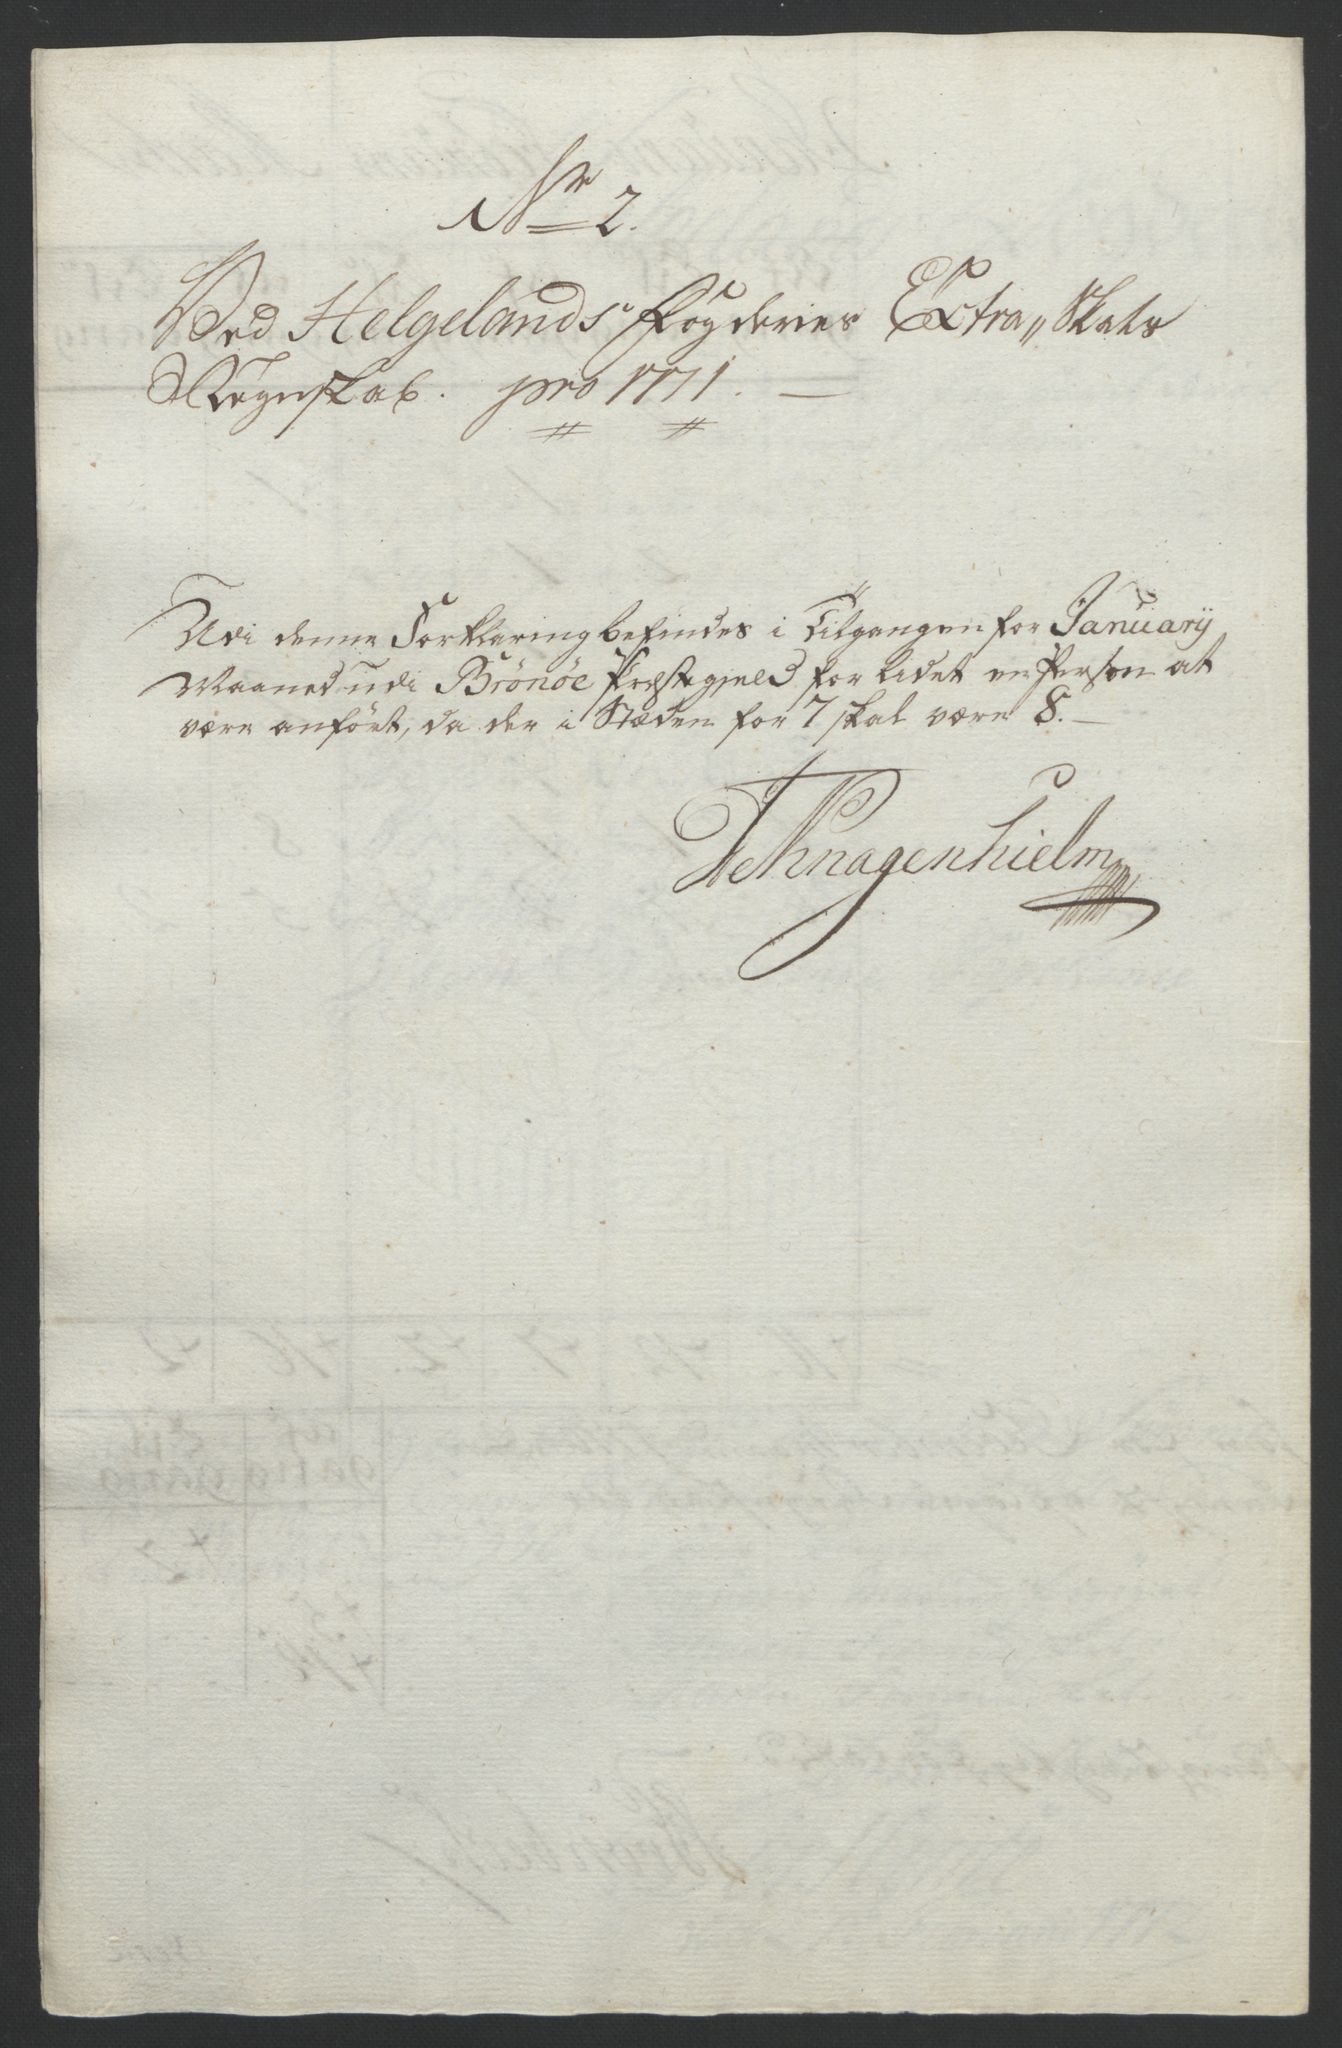 No 2.
Ved Helgelands Fogderies Extra„ Skats
Regnskab. pro 1771. —
Udi denne Forklaring befindes i Tilgangen for January
Maaned udi Brönöe Præstegjeld for lidet en Person at
være anfört, da der i Stæden for 7 skal være 8. —
Knagenhielm